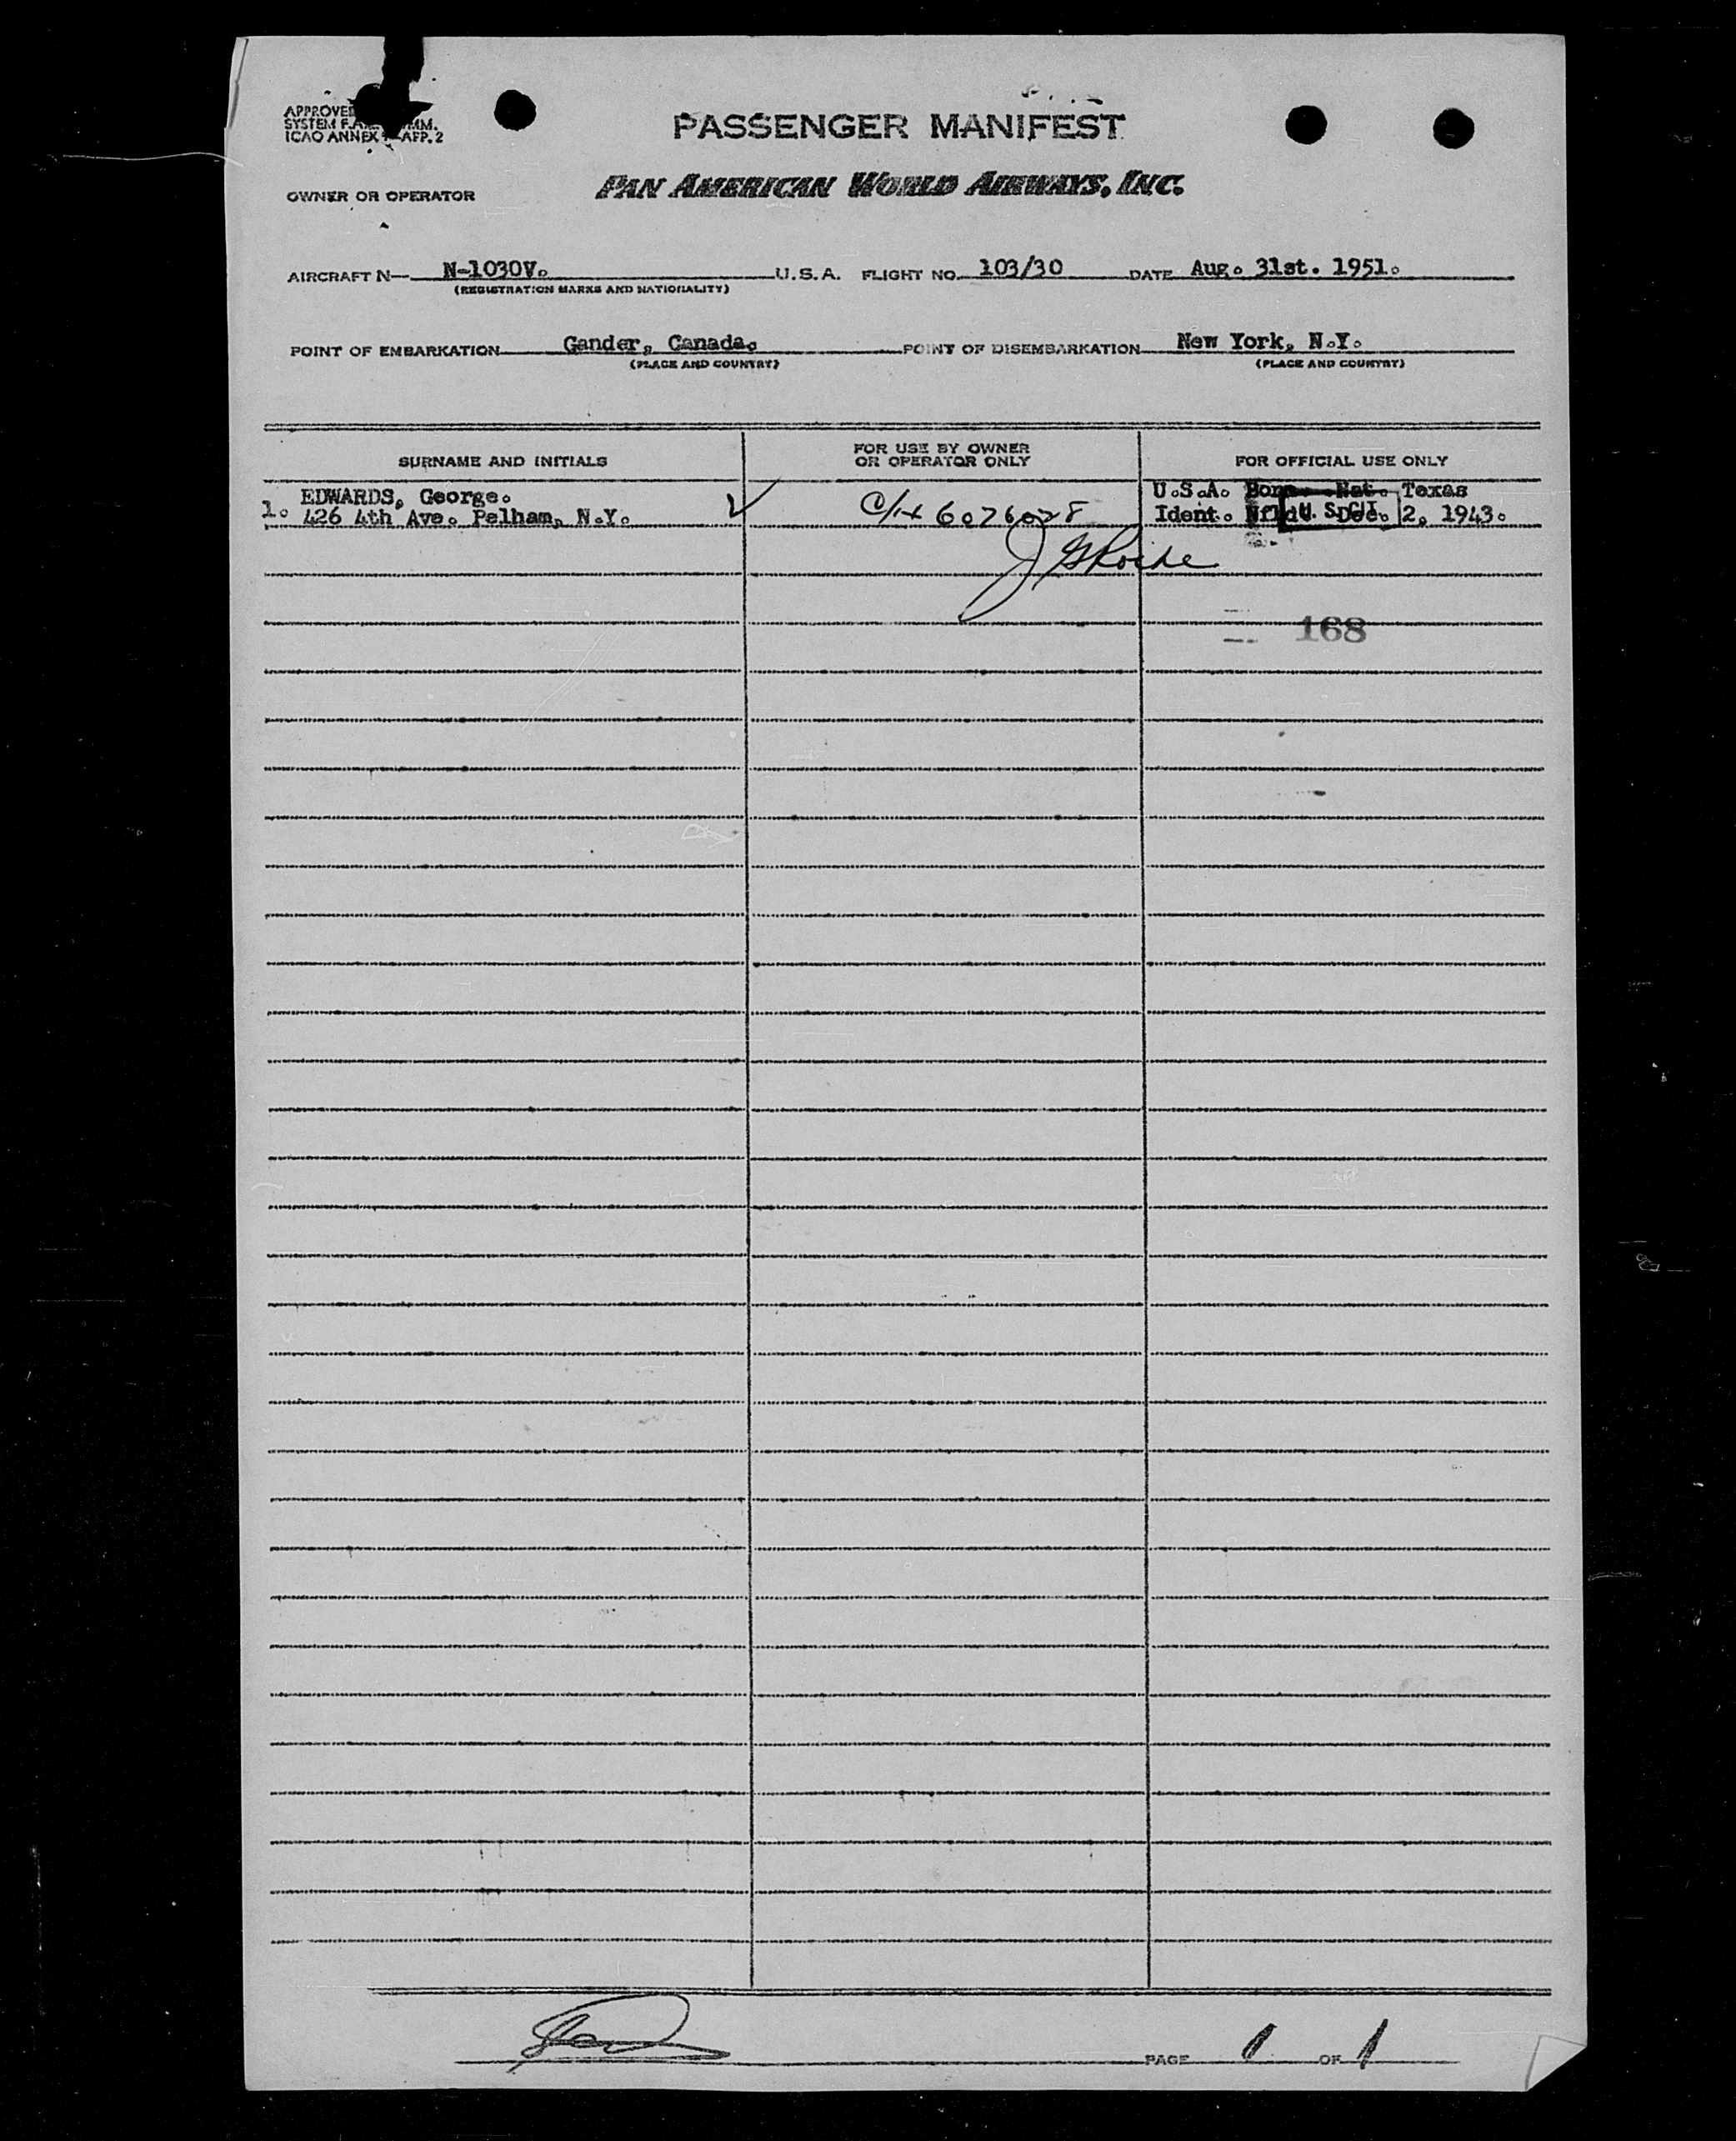 PASSENGER MANIFEST
ICAO ANNEX APP. 2
OWNER OR OPERATOR
PAN AMERICAN WORLD AIRWAYS, INC.
AIRCRAFT N— N-1030V. U.S.A. FLIGHT NO. 103/30 DATE Aug. 31st. 1951.
(REGISTRATION MARKS AND NATIONALITY)
POINT OF EMBARKATION Gander, Canada. POINT OF DISEMBARKATION New York, N.Y.
(PLACE AND COUNTRY) (PLACE AND COUNTRY)
SURNAME AND INITIALS
FOR USE BY OWNER
OR OPERATOR ONLY
FOR OFFICIAL USE ONLY
EDWARDS, George.
1. 426 4th Ave. Pelham, N.Y.
6076078
U.S.A. Born Nat. Texas
Ident. Nfld. Dec. 2, 1943.
168
PAGE 1 OF 1